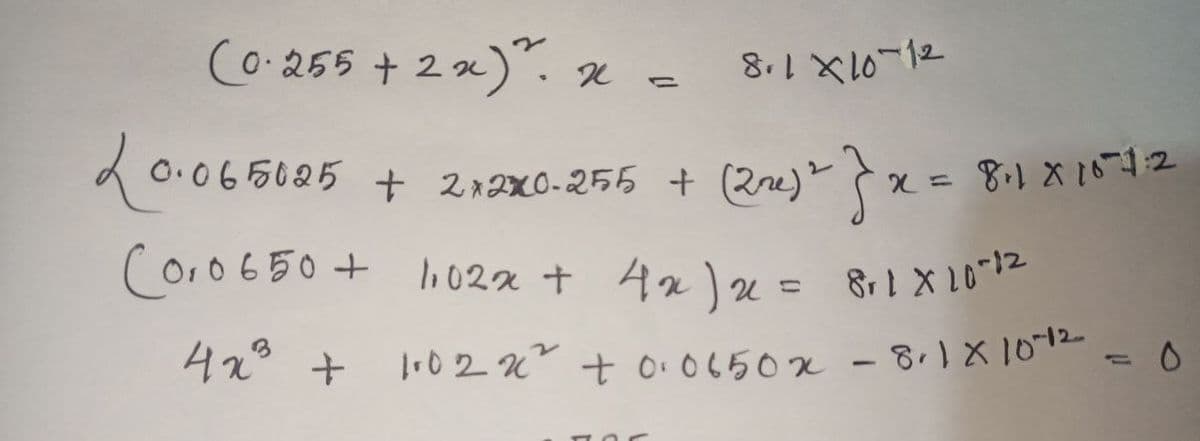 (0.255 + 2x)². x = 8.1 × 10⁻¹²
{0.065025 + 2×2×0.255 + (2x)²} x = 8.1 × 10⁻¹²
(0.0650 + 1.02x + 4x) x = 8.1 × 10⁻¹²
4x³ + 1.02x² + 0.0650x − 8.1 × 10⁻¹² = 0